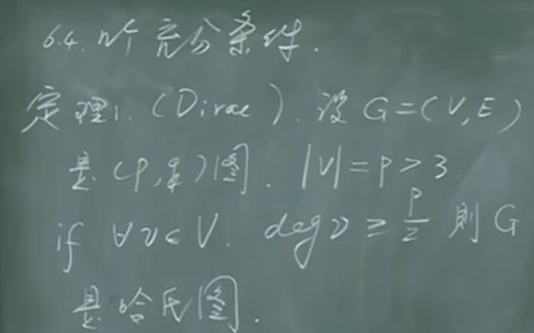 6.4. 个充分条件.
定理1. (Dirac). 设 G=(V,E)
是(p,q)图. |V|=p>3.
if ∀v∈V. deg v ≥ p/2 则 G
是哈氏图.